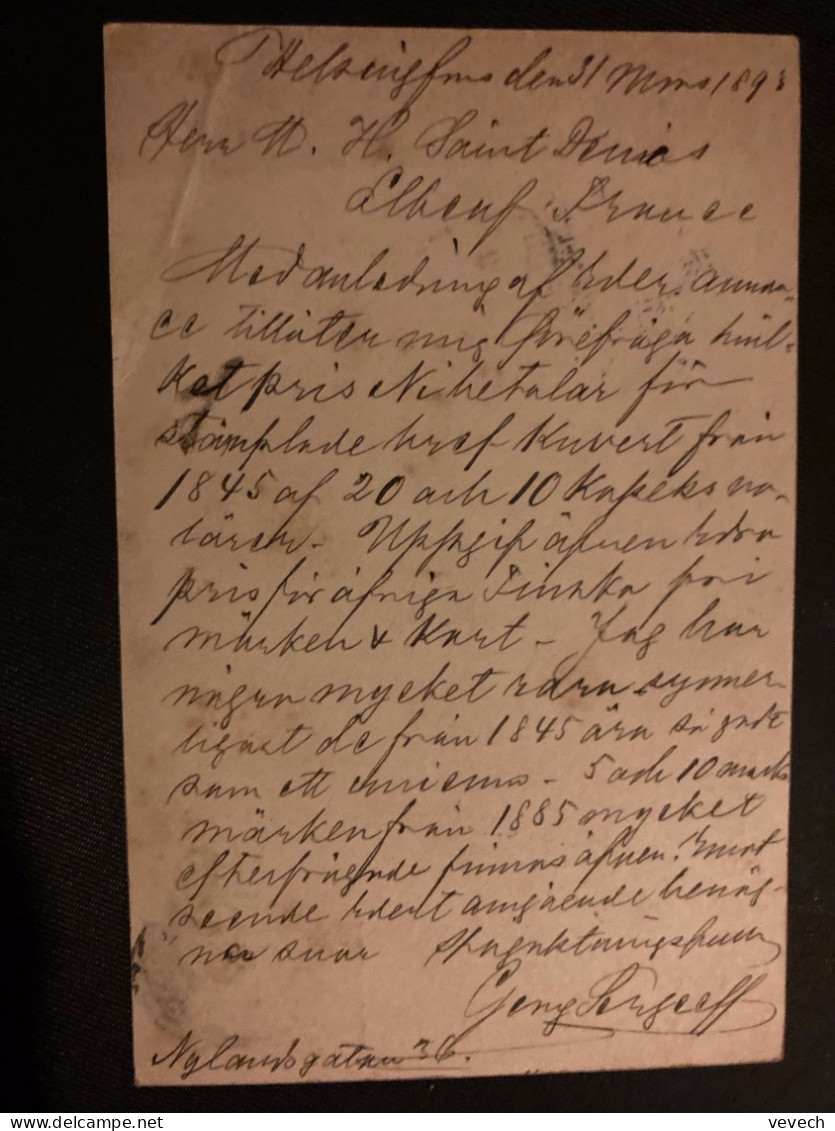 Helsingfors den 31 Mars 1893
Herr M. H. Saint Denis
Elbeuf France
Med anledning af Eder annon-
ce tillåter mig förefråga hvil-
ket pris Ni betalar för
stämplade bref Kuvert från
1845 af 20 och 10 Kopeks va-
lörer - Uppgif äfven Edra
pris för öfriga Finska fri
märken & Kort - Jag har
några mycket rara synner-
ligast de från 1845 ära så godt
som ett unicums - 5 och 10 marks
märken från 1885 mycket
efterfrågade finnas äfven. Emot
seende Edert angående benäg-
na svar Högaktningsfull
Georg Sergeeff
Nylandsgatan 36.
vevech